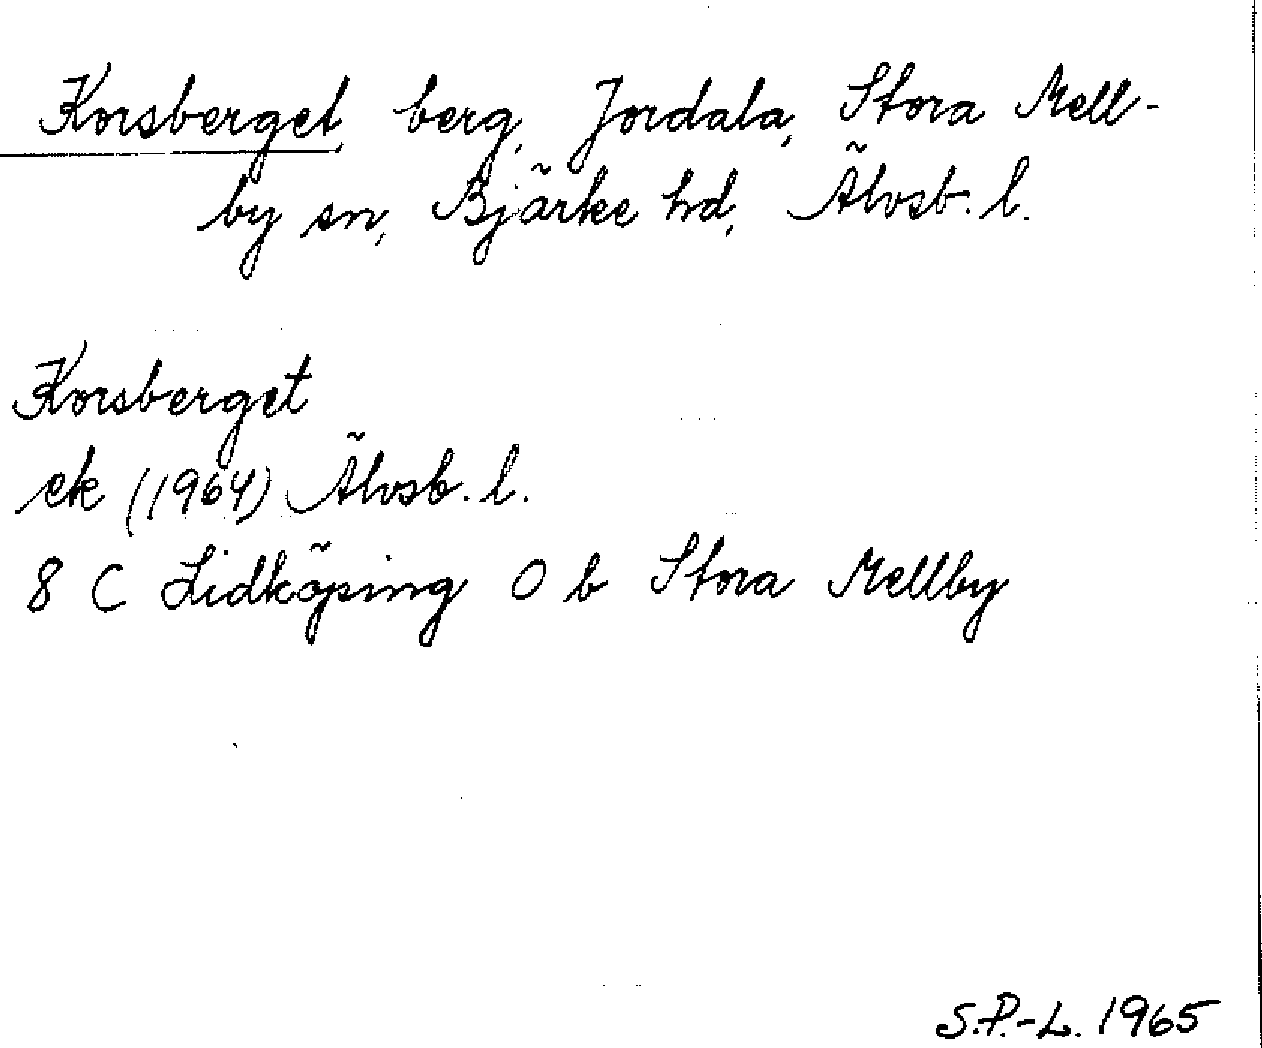 Korsberget, berg, Jordala, Stora Mell-
by sn, Bjärke hd, Älvsb. l.
Korsberget
ek (1964) Älvsb. l.
8 C Lidköping 0 b Stora Mellby
S.P.-L. 1965